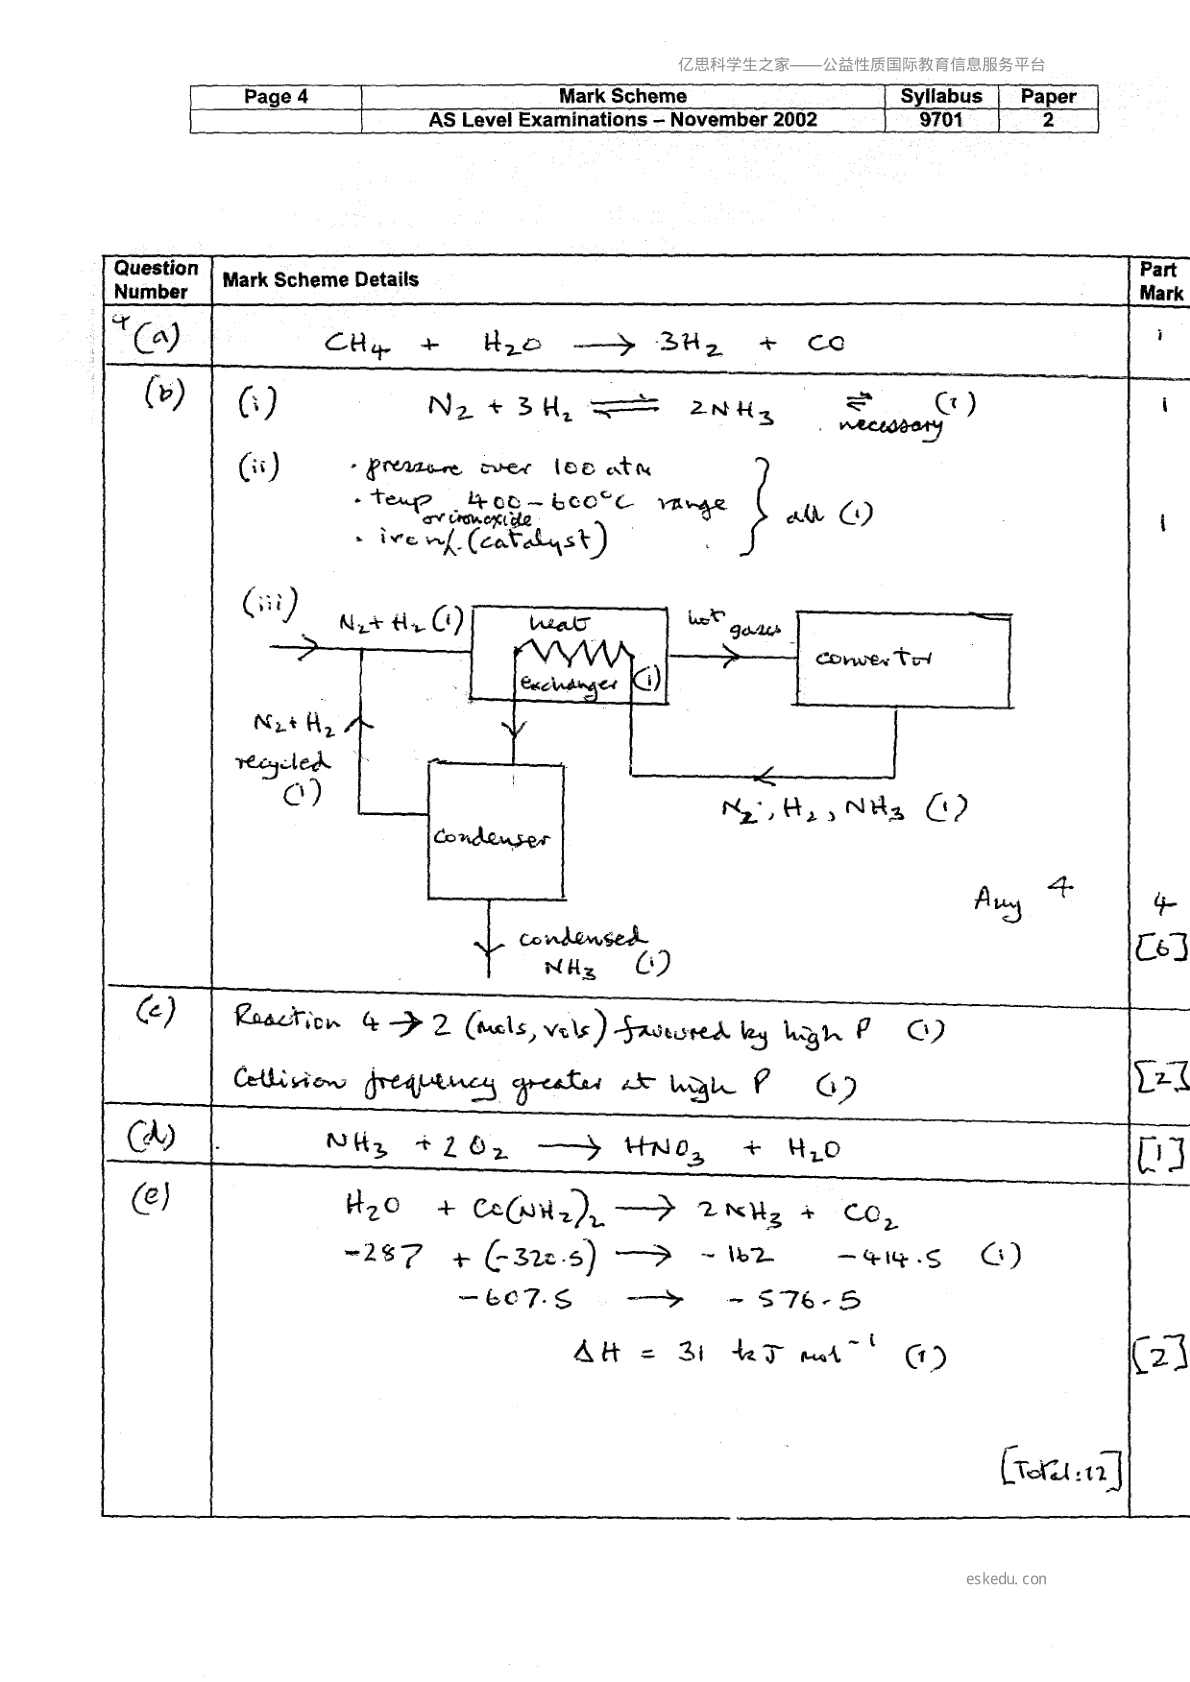 亿思科学生之家——公益性质国际教育信息服务平台
Page 4 Mark Scheme Syllabus Paper
AS Level Examinations – November 2002 9701 2
Question Number Mark Scheme Details Part Mark
4 (a) CH₄ + H₂O → 3H₂ + CO 1
(b) (i) N₂ + 3H₂ ⇌ 2NH₃ ⇌ necessary (1) 1
(ii) · pressure over 100 atm
· temp 400–600°C range } all (1) 1
or iron oxide
· iron (catalyst)
(iii) N₂ + H₂ (1)
heat exchanger (1)
hot gases
convertor
N₂ + H₂ recycled (1)
condenser
N₂, H₂, NH₃ (1)
Any 4 4
[6]
condensed NH₃ (1)
(c) Reaction 4 → 2 (mols, vols) favoured by high P (1)
Collision frequency greater at high P (1) [2]
(d) NH₃ + 2O₂ → HNO₃ + H₂O [1]
(e) H₂O + CO(NH₂)₂ → 2NH₃ + CO₂
-287 + (-320.5) → -162 -414.5 (1)
-607.5 → -576.5
ΔH = 31 kJ mol⁻¹ (1) [2]
[Total: 12]
eskedu.con